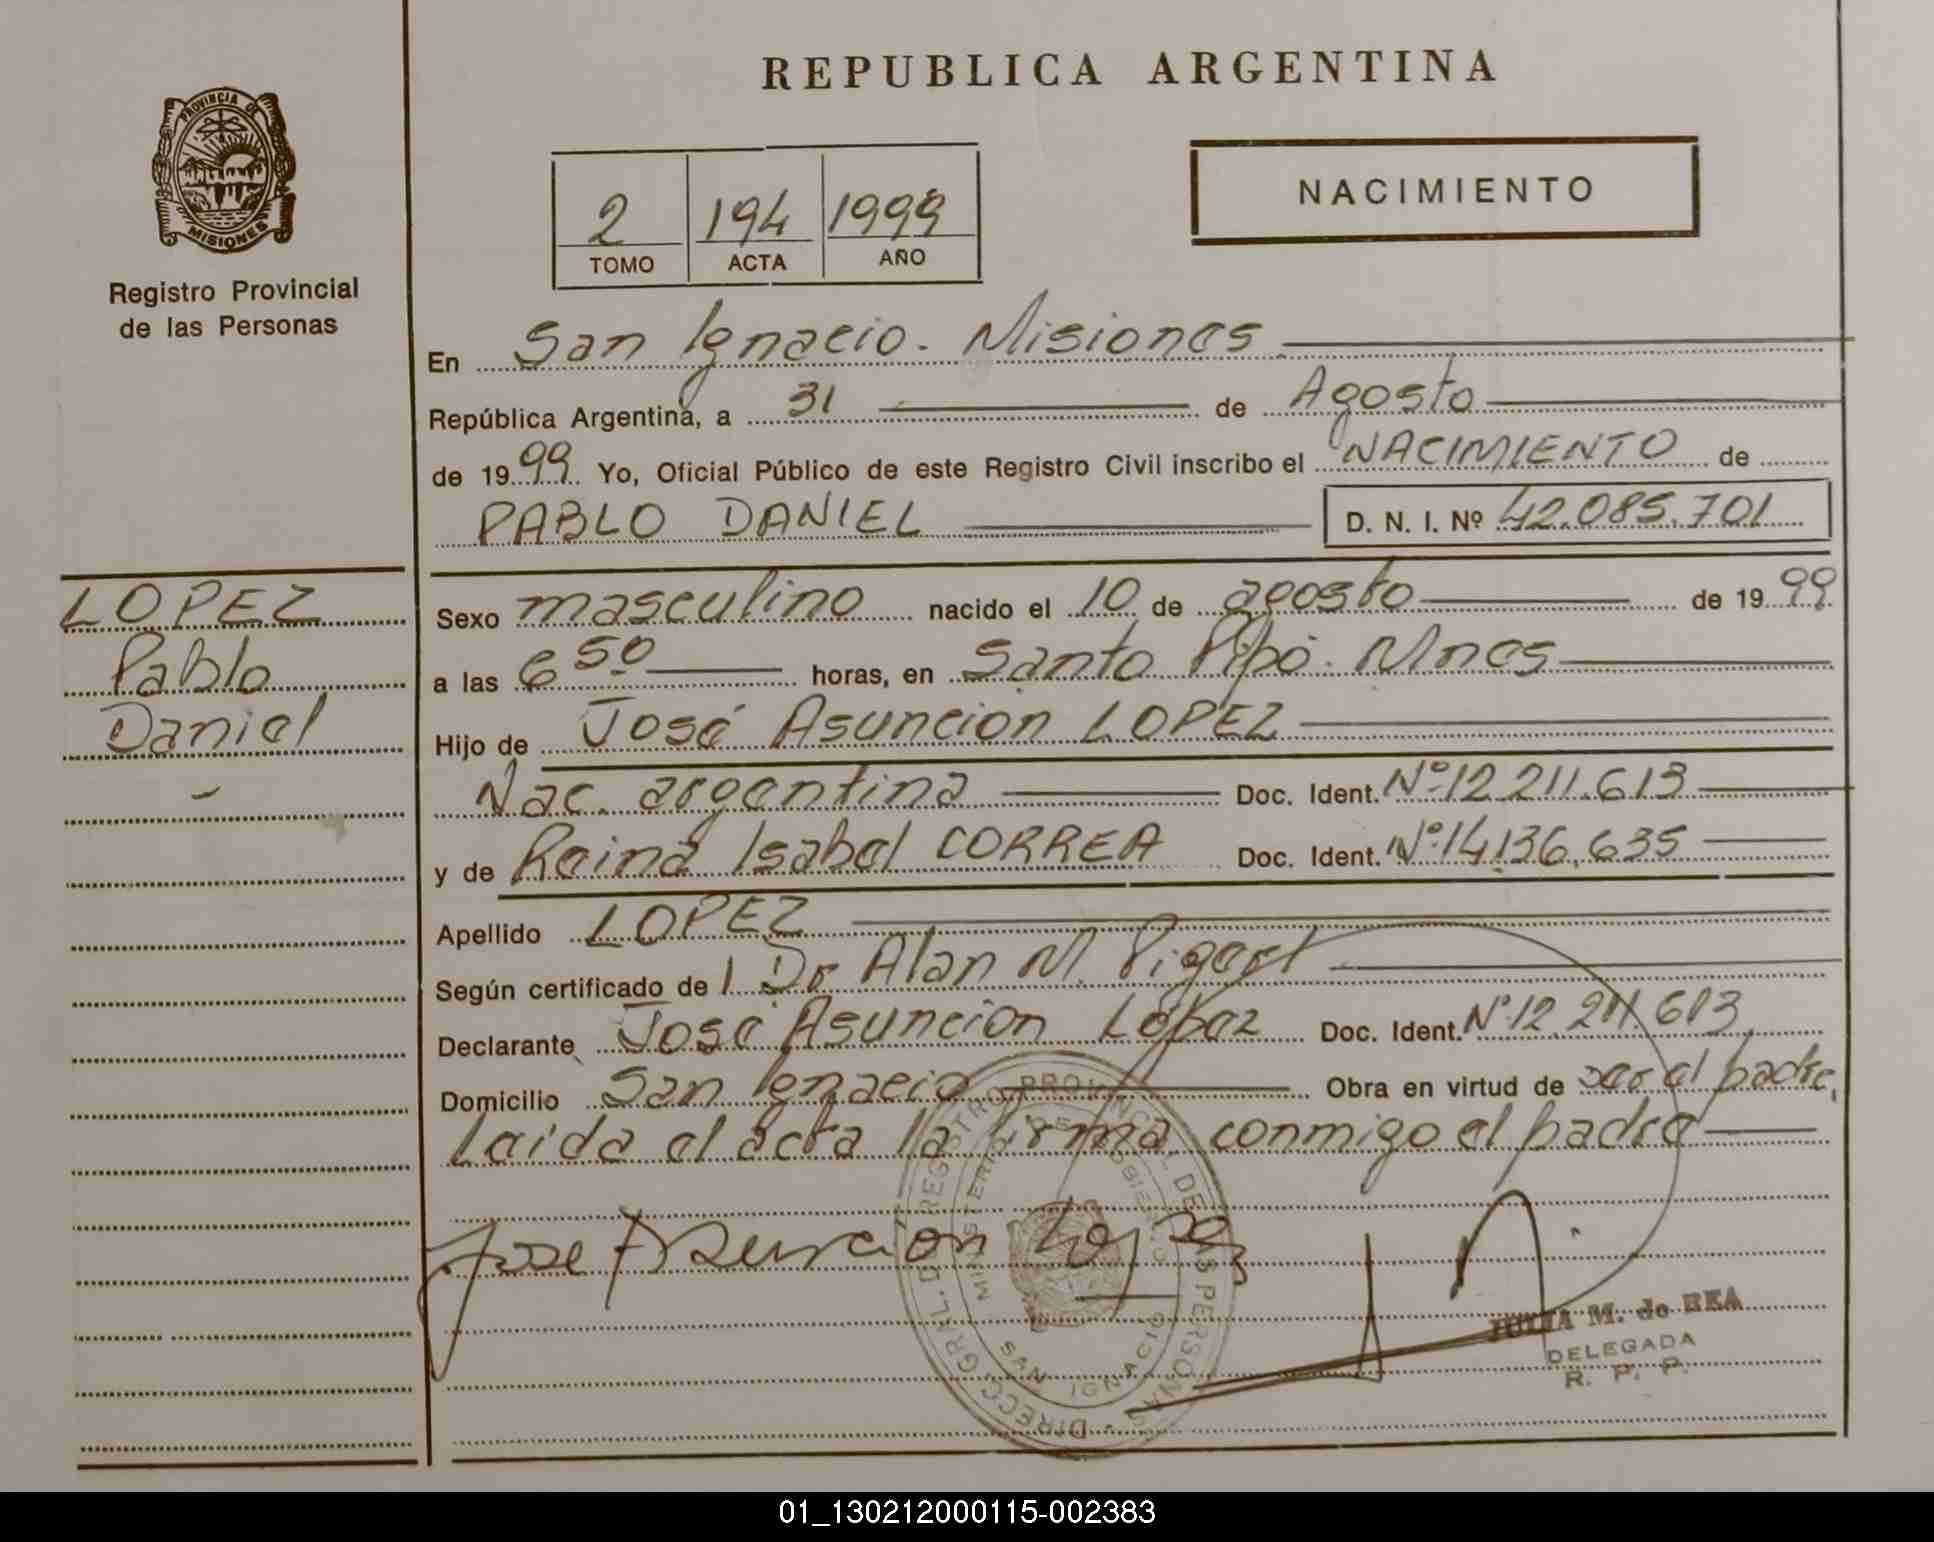 REPUBLICA ARGENTINA
PROVINCIA DE MISIONES
Registro Provincial
de las Personas
NACIMIENTO
2 194 1999
TOMO ACTA AÑO
En San Ignacio. Misiones
República Argentina, a 31 de Agosto
de 1999 Yo, Oficial Público de este Registro Civil inscribo el NACIMIENTO de
PABLO DANIEL D. N. I. Nº 42.085.701
LOPEZ
Pablo
Daniel
Sexo masculino nacido el 10 de agosto de 1999
a las 6 50 horas, en Santo Pipó. Mnes
Hijo de José Asuncion LOPEZ
Nac. argentina Doc. Ident. Nº 12.211.613
y de Reina Isabel CORREA Doc. Ident. Nº 14.136.635
Apellido LOPEZ
Según certificado de l Dr Alan M.
Declarante José Asuncion Lopez Doc. Ident. Nº 12.211.613
Domicilio San Ignacio Obra en virtud de ser el padre,
Leida el acta la firma conmigo el padre
Jose Asuncion Lopez
DIRECC. GRAL. DE REGISTRO PROVINCIAL DE LAS PERSONAS
MINISTERIO DE GOBIERNO
SAN IGNACIO
JULIA M. de REA
DELEGADA
R. P. P.
01_130212000115-002383